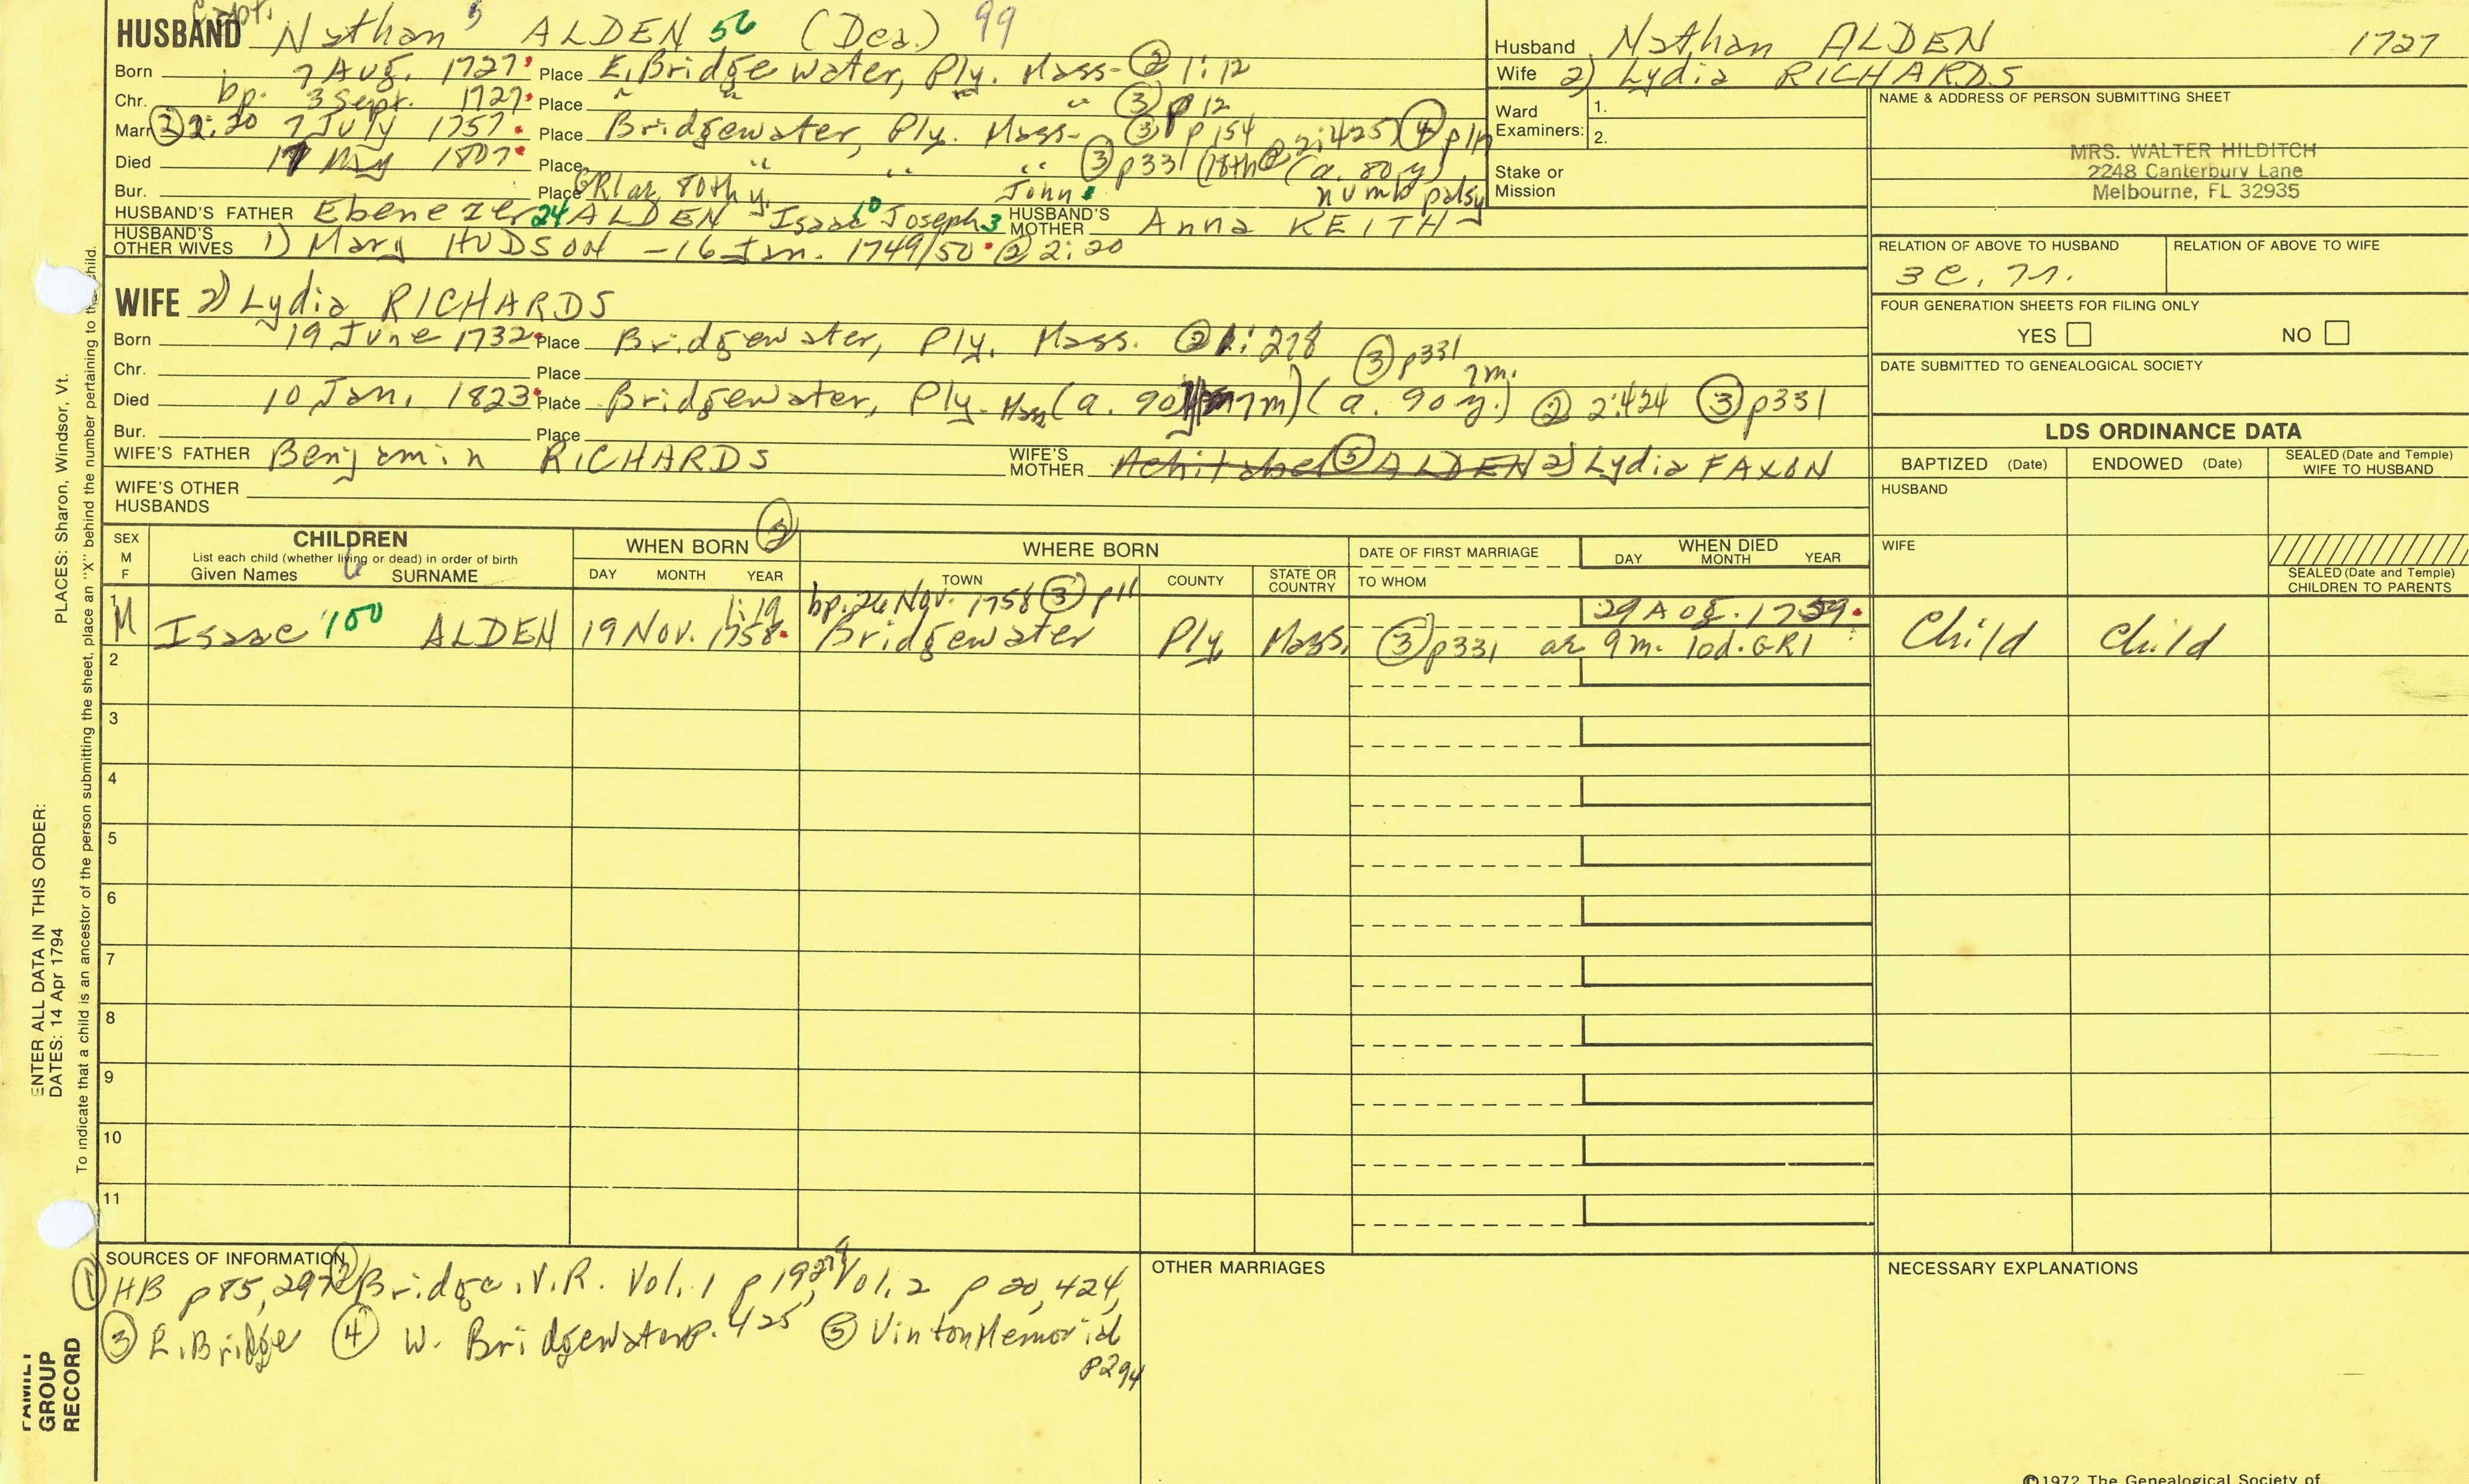 Capt.
HUSBAND Nathan 5 ALDEN 56 (Dea.) 99
Born 7 Aug. 1727 Place E. Bridgewater, Ply. Mass. ② 1:12
Chr. bp. 3 Sept. 1727 Place " " " " ③ p 12
Marr. ② 2:20 7 July 1757 Place Bridgewater, Ply. Mass. ③ p 154
Died 17 My 1807 Place " " " ③ p331 (18th ② 2:425) ④ p
(a. 80 y)
Bur. Place GR1 ae 80th y. John numb palsy
HUSBAND'S FATHER Ebenezer 24 ALDEN Isaac 10 Joseph 3 HUSBAND'S MOTHER Anna KEITH
HUSBAND'S OTHER WIVES 1) Mary HUDSON - 16 Jan. 1749/50 ② 2:20
Husband Nathan ALDEN 1727
Wife 2) Lydia RICHARDS
Ward Examiners: 1.
2.
Stake or Mission
NAME & ADDRESS OF PERSON SUBMITTING SHEET
MRS. WALTER HILDITCH
2248 Canterbury Lane
Melbourne, FL 32935
RELATION OF ABOVE TO HUSBAND RELATION OF ABOVE TO WIFE
3C. 7r.
FOUR GENERATION SHEETS FOR FILING ONLY
YES NO
DATE SUBMITTED TO GENEALOGICAL SOCIETY
WIFE 2) Lydia RICHARDS
Born 19 June 1732 Place Bridgewater, Ply. Mass. ② 1:278 ③ p331
Chr. Place 7m.
Died 10 Jan. 1823 Place Bridgewater, Ply. Mass (a. 90 7m) (a. 90 y.) ② 2:424 ③ p331
Bur. Place
WIFE'S FATHER Benjamin RICHARDS WIFE'S MOTHER Mehitabel ⑤ ALDEN 2) Lydia FAXON
WIFE'S OTHER HUSBANDS
LDS ORDINANCE DATA
BAPTIZED (Date) ENDOWED (Date) SEALED (Date and Temple) WIFE TO HUSBAND
HUSBAND
WIFE
SEALED (Date and Temple) CHILDREN TO PARENTS
SEX M F
CHILDREN
List each child (whether living or dead) in order of birth
Given Names 6 SURNAME
WHEN BORN ②
DAY MONTH YEAR
WHERE BORN
TOWN COUNTY STATE OR COUNTRY
DATE OF FIRST MARRIAGE
TO WHOM
WHEN DIED
DAY MONTH YEAR
1:19 bp. 26 Nov. 1758 ③ p11 29 Aug. 1759
1 M Isaac 150 ALDEN 19 Nov. 1758 Bridgewater Ply. Mass. ③ p331 ae 9m. 10d. GR1 Child Child
2
3
4
5
6
7
8
9
10
11
SOURCES OF INFORMATION
① HB p 85, 297 ② Bridge. V.R. Vol. 1 p 19, 278, Vol. 2 p 20, 424,
③ E. Bridge ④ W. Bridgewater p. 425 ⑤ Vinton Memorial
p294
OTHER MARRIAGES
NECESSARY EXPLANATIONS
©1972 The Genealogical Society of
PLACES: Sharon, Windsor, Vt.
ENTER ALL DATA IN THIS ORDER:
DATES: 14 Apr 1794
To indicate that a child is an ancestor of the person submitting the sheet, place an "X" behind the number pertaining to the child.
FAMILY GROUP RECORD